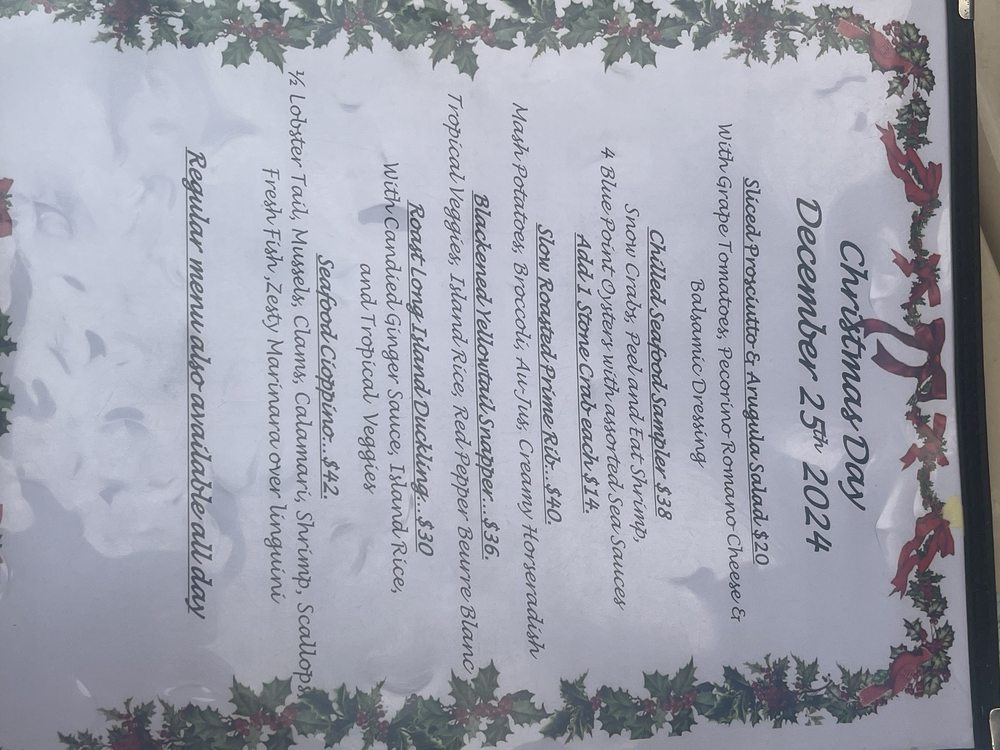 Christmas Day
December 25th 2024
Sliced Prosciutto & Arugula Salad $20
With Grape Tomatoes, Pecorino Romano Cheese &
Balsamic Dressing
Chilled Seafood Sampler $38
Snow Crabs, Peel and Eat Shrimp,
4 Blue Point Oysters with assorted Sea Sauces
Add 1 Stone Crab each $14.
Slow Roasted Prime Rib..$40.
Mash Potatoes, Broccoli, Au Jus, Creamy Horseradish
Blackened Yellowtail Snapper...$36.
Tropical Veggies, Island Rice, Red Pepper Beurre Blanc
Roast Long Island Duckling...$30
With Candied Ginger Sauce, Island Rice,
and Tropical Veggies
Seafood Cioppino..$42.
½ Lobster Tail, Mussels, Clams, Calamari, Shrimp, Scallops
Fresh Fish ,Zesty Marinara over linguini
Regular menu also available all day